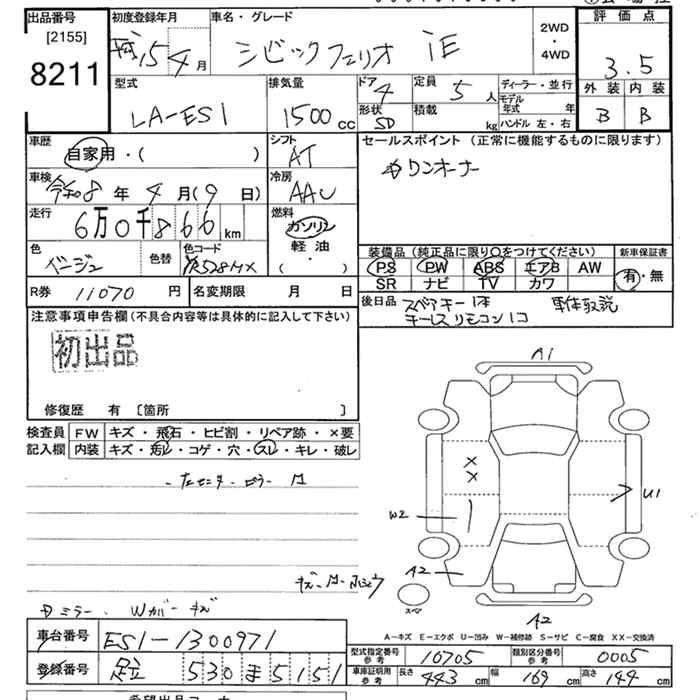 出品番号
[2155]
8211
初度登録年月
平成15年4月
車名・グレード
シビックフェリオ iE
2WD
・
4WD
評価点
3.5
外装 内装
B B
型式
LA-ES1
排気量
1500 cc
ドア
4
定員
5 人
形状
SD
積載
kg
ディーラー・並行
モデル年式 年
ハンドル 左・右
車歴
自家用・( )
シフト
AT
セールスポイント (正常に機能するものに限ります)
ワンオーナー
車検
令和8年4月(9日)
冷房
AAC
走行
6万0千866km
燃料
ガソリン
軽油
・( )
色
ベージュ
色替
色コード
YR528MX
装備品 (純正品に限り〇をつけてください)
PS PW ABS エアB AW
SR ナビ TV カワ
新車保証書
有・無
R券 11070 円
名変期限 月 日
後日品
スペアキー1本 車体取説
キーレスリモコン1コ
注意事項申告欄(不具合内容等は具体的に記入して下さい)
初出品
修復歴 有 〔箇所 〕
検査員
記入欄
FW キズ・飛石・ヒビ割・リペア跡・×要
内装 キズ・汚レ・コゲ・穴・スレ・キレ・破レ
A1
××
W2
U1
A2
スペア
A2
A-キズ E-エクボ U-凹み W-補修跡 S-サビ C-腐食 XX-交換済
車台番号 ES1-1300971
登録番号 足立 530 ま 5151
型式指定番号
参考
10705
類別区分番号
参考
0005
車庫証明用
参考
長さ 443 cm 幅 169 cm 高さ 144 cm